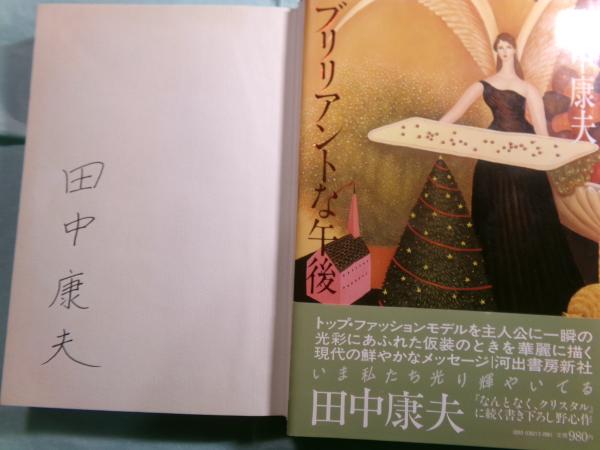 田中康夫
ブリリアントな午後
中康夫
トップ・ファッションモデルを主人公に一瞬の
光彩にあふれた仮装のときを華麗に描く
現代の鮮やかなメッセージ!河出書房新社
いま私たち光り輝やいてる
田中康夫
『なんとなく、クリスタル』
に続く書き下ろし野心作
定価980円